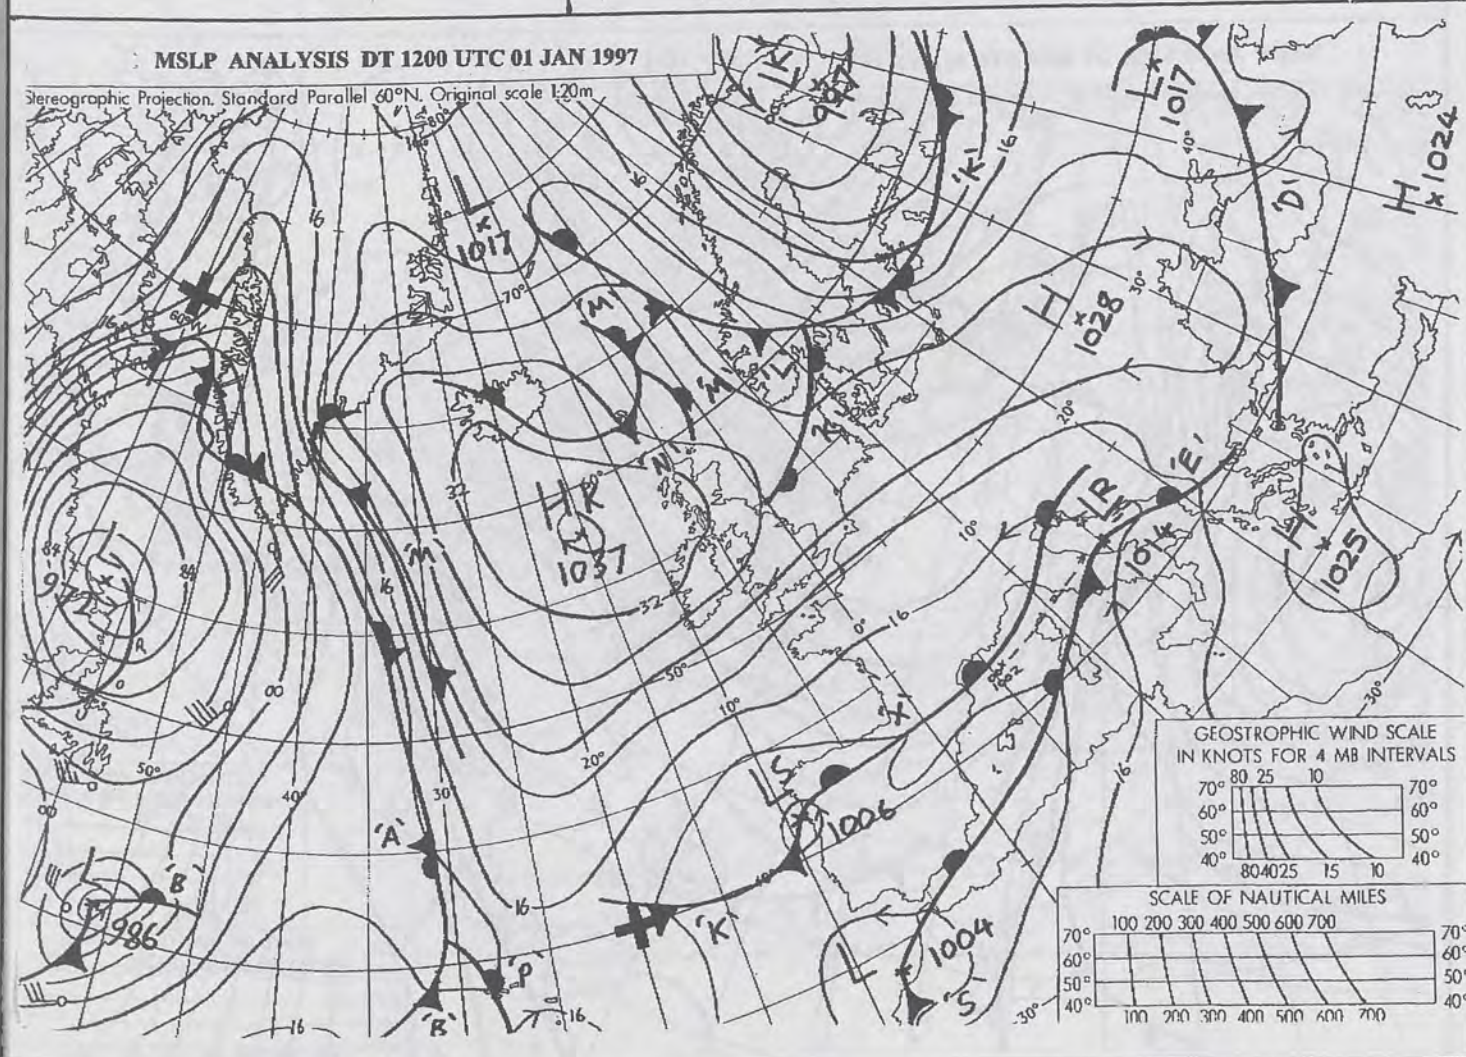 MSLP ANALYSIS DT 1200 UTC 01 JAN 1997
Stereographic Projection. Standard Parallel 60°N. Original scale 1:20m
80°
L
997
'K'
16
L
1017
40°
'D'
H
1024
16
16
L
1017
70°
'M'
H
1028
30°
60°W
16
'M'
'L'
20°
'E'
32
'N'
60°
H
R
1037
'M'
16
10°
R
1014
H
1025
84
L
84
00
32
0°
16
50°
-30°
R
00
10°
'X'
1002
50°
20°
00
40°
30°
'A'
L
S
1006
16
40°
16
'K'
L
'B'
986
L
1004
'S'
'P'
'B'
16
16
-30°
GEOSTROPHIC WIND SCALE
IN KNOTS FOR 4 MB INTERVALS
80 25 10
70° 70°
60° 60°
50° 50°
40° 40°
80 40 25 15 10
SCALE OF NAUTICAL MILES
100 200 300 400 500 600 700
70° 70°
60° 60°
50° 50°
40° 40°
100 200 300 400 500 600 700